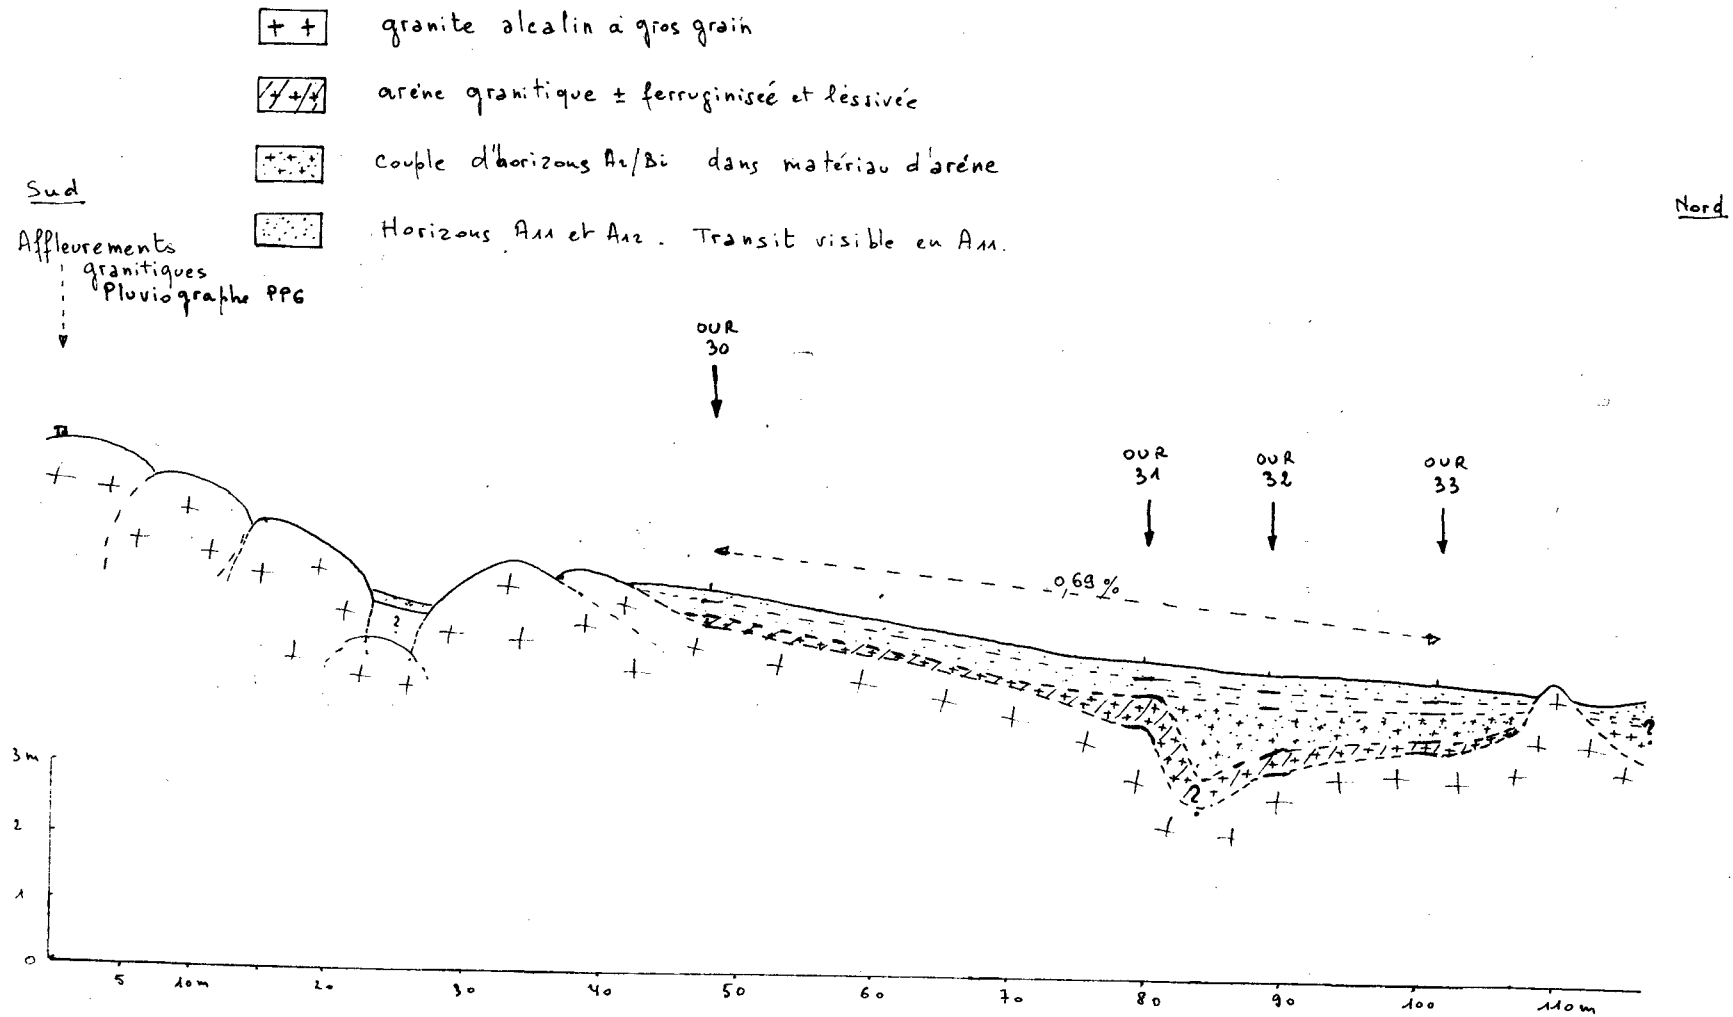 granite alcalin à gros grain
arène granitique ± ferruginisée et lessivée
couple d'horizons A2/Bi dans matériau d'arène
Horizons A11 et A12. Transit visible en A11.
Sud
Nord
Affleurements
granitiques
Pluviographe PP6
OUR
30
OUR
31
OUR
32
OUR
33
0,69 %
?
?
?
3 m
2
1
0
5 10 m 20 30 40 50 60 70 80 90 100 110 m